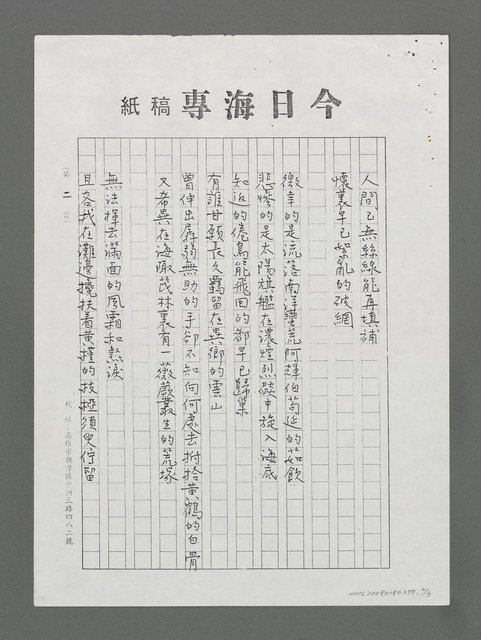 今日海專 稿紙
人間已無絲線能再填補
懷裏早已紊亂的破網
僥幸的是流落南洋蠻荒阿輝伯苟延的茹飲
悲慘的是太陽旗艦在濃煙烈燄中旋入海底
知返的倦鳥能飛回的都早已歸巢
有誰甘願長久羈留在異鄉的雲山
曾伸出孱弱無助的手卻不知向何處去拊拾黃鶴的白骨
又希冀在海陬茂林裏有一薇蕨叢生的荒塚
無法揮去滿面的風霜和熱淚
且容我在灘邊攙扶着黃槿的枝椏須臾佇留
(第 二 頁)
校 址:高雄市旗津區中洲三路四八二號
NMTL20080180350, 2/3